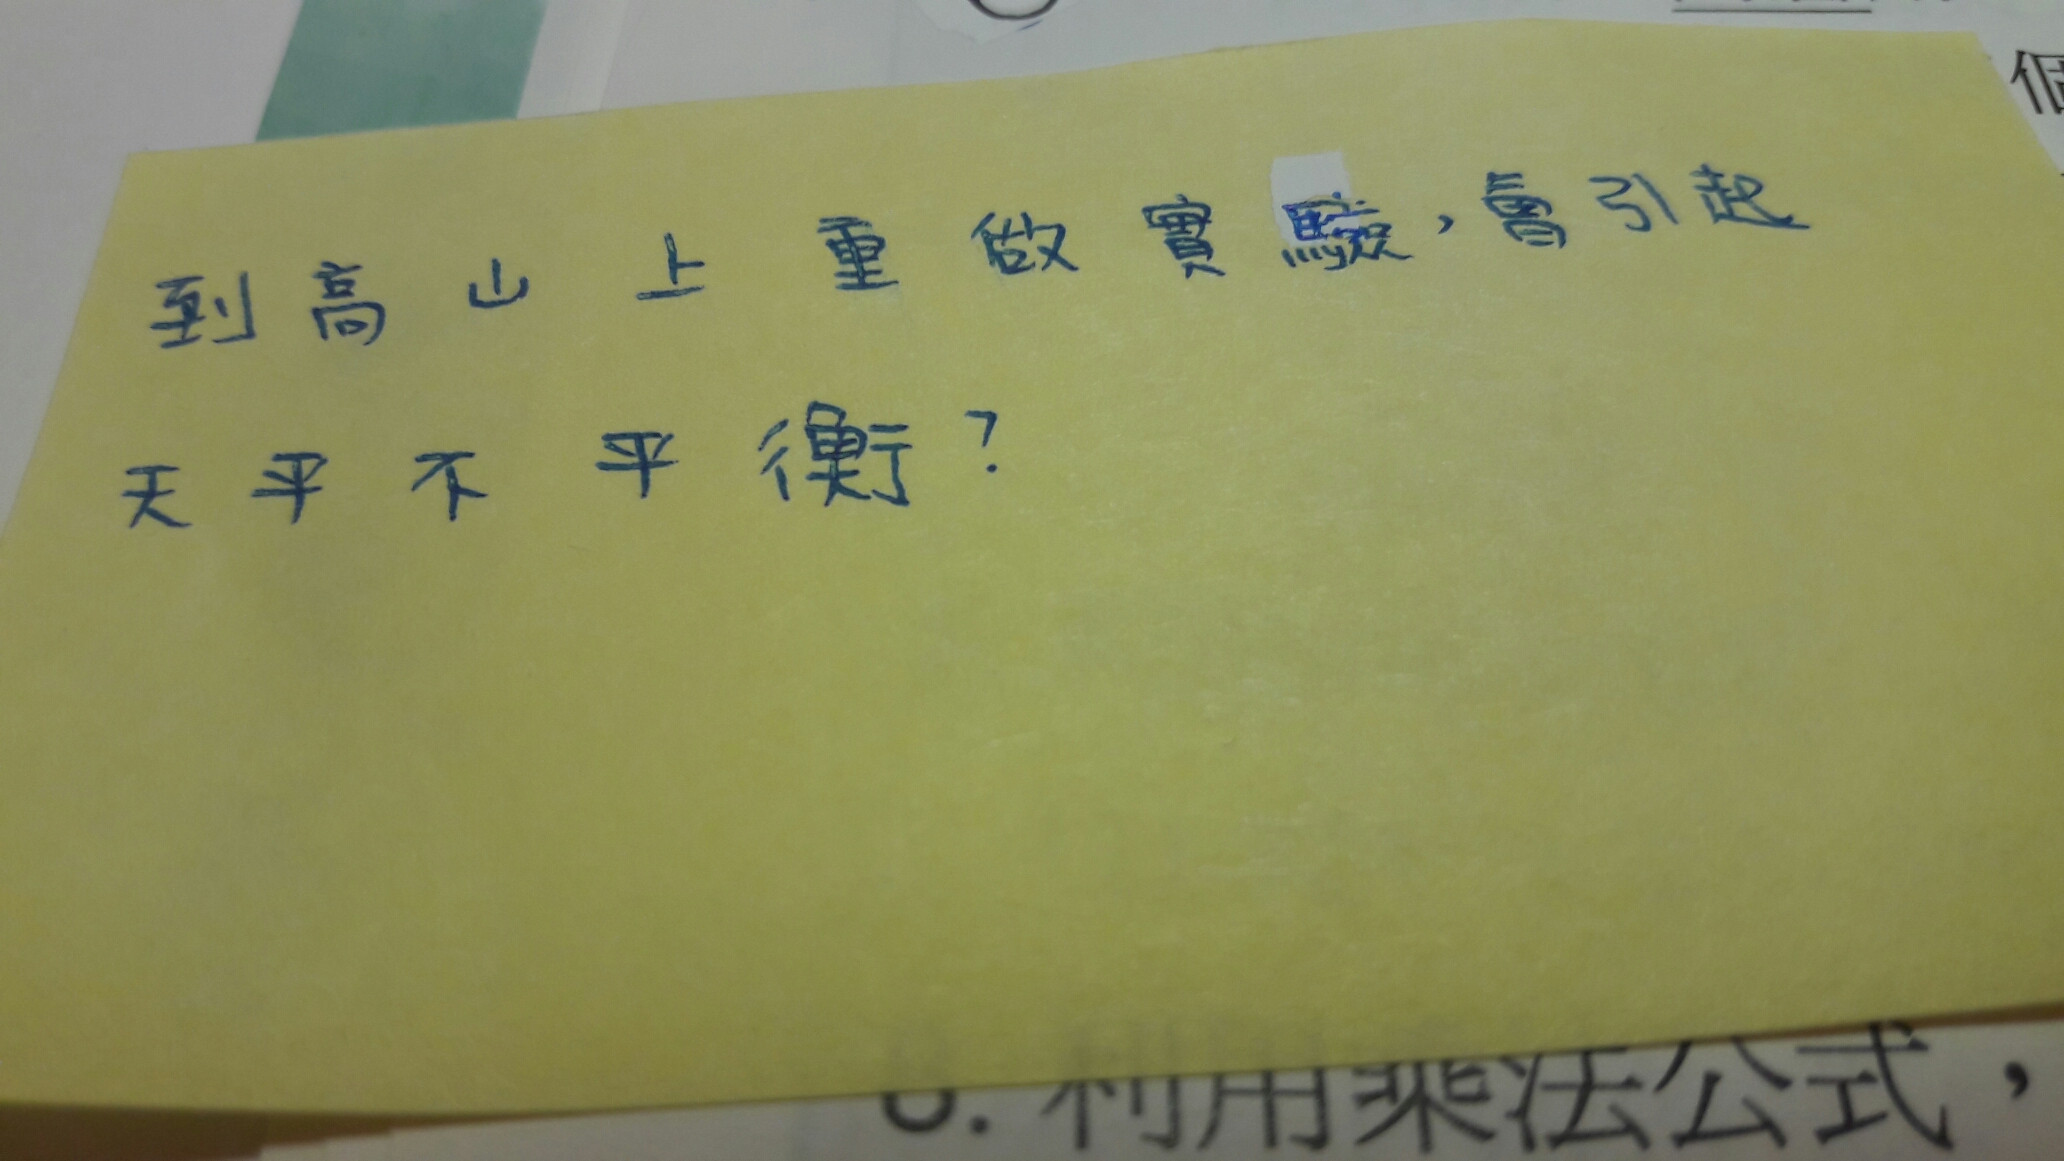 個
到高山上重做實驗，會引起
天平不平衡？
6. 利用乘法公式，